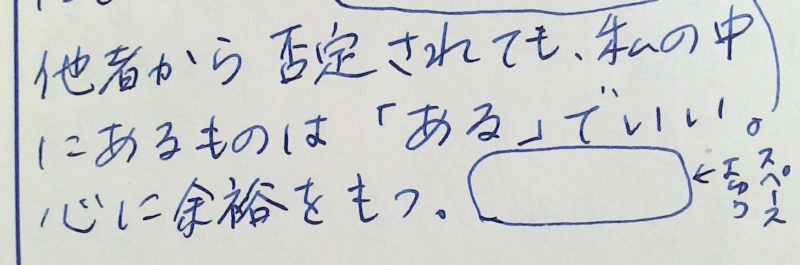 他者から否定されても、私の中
にあるものは「ある」でいい。
心に余裕をもつ。
←スペース